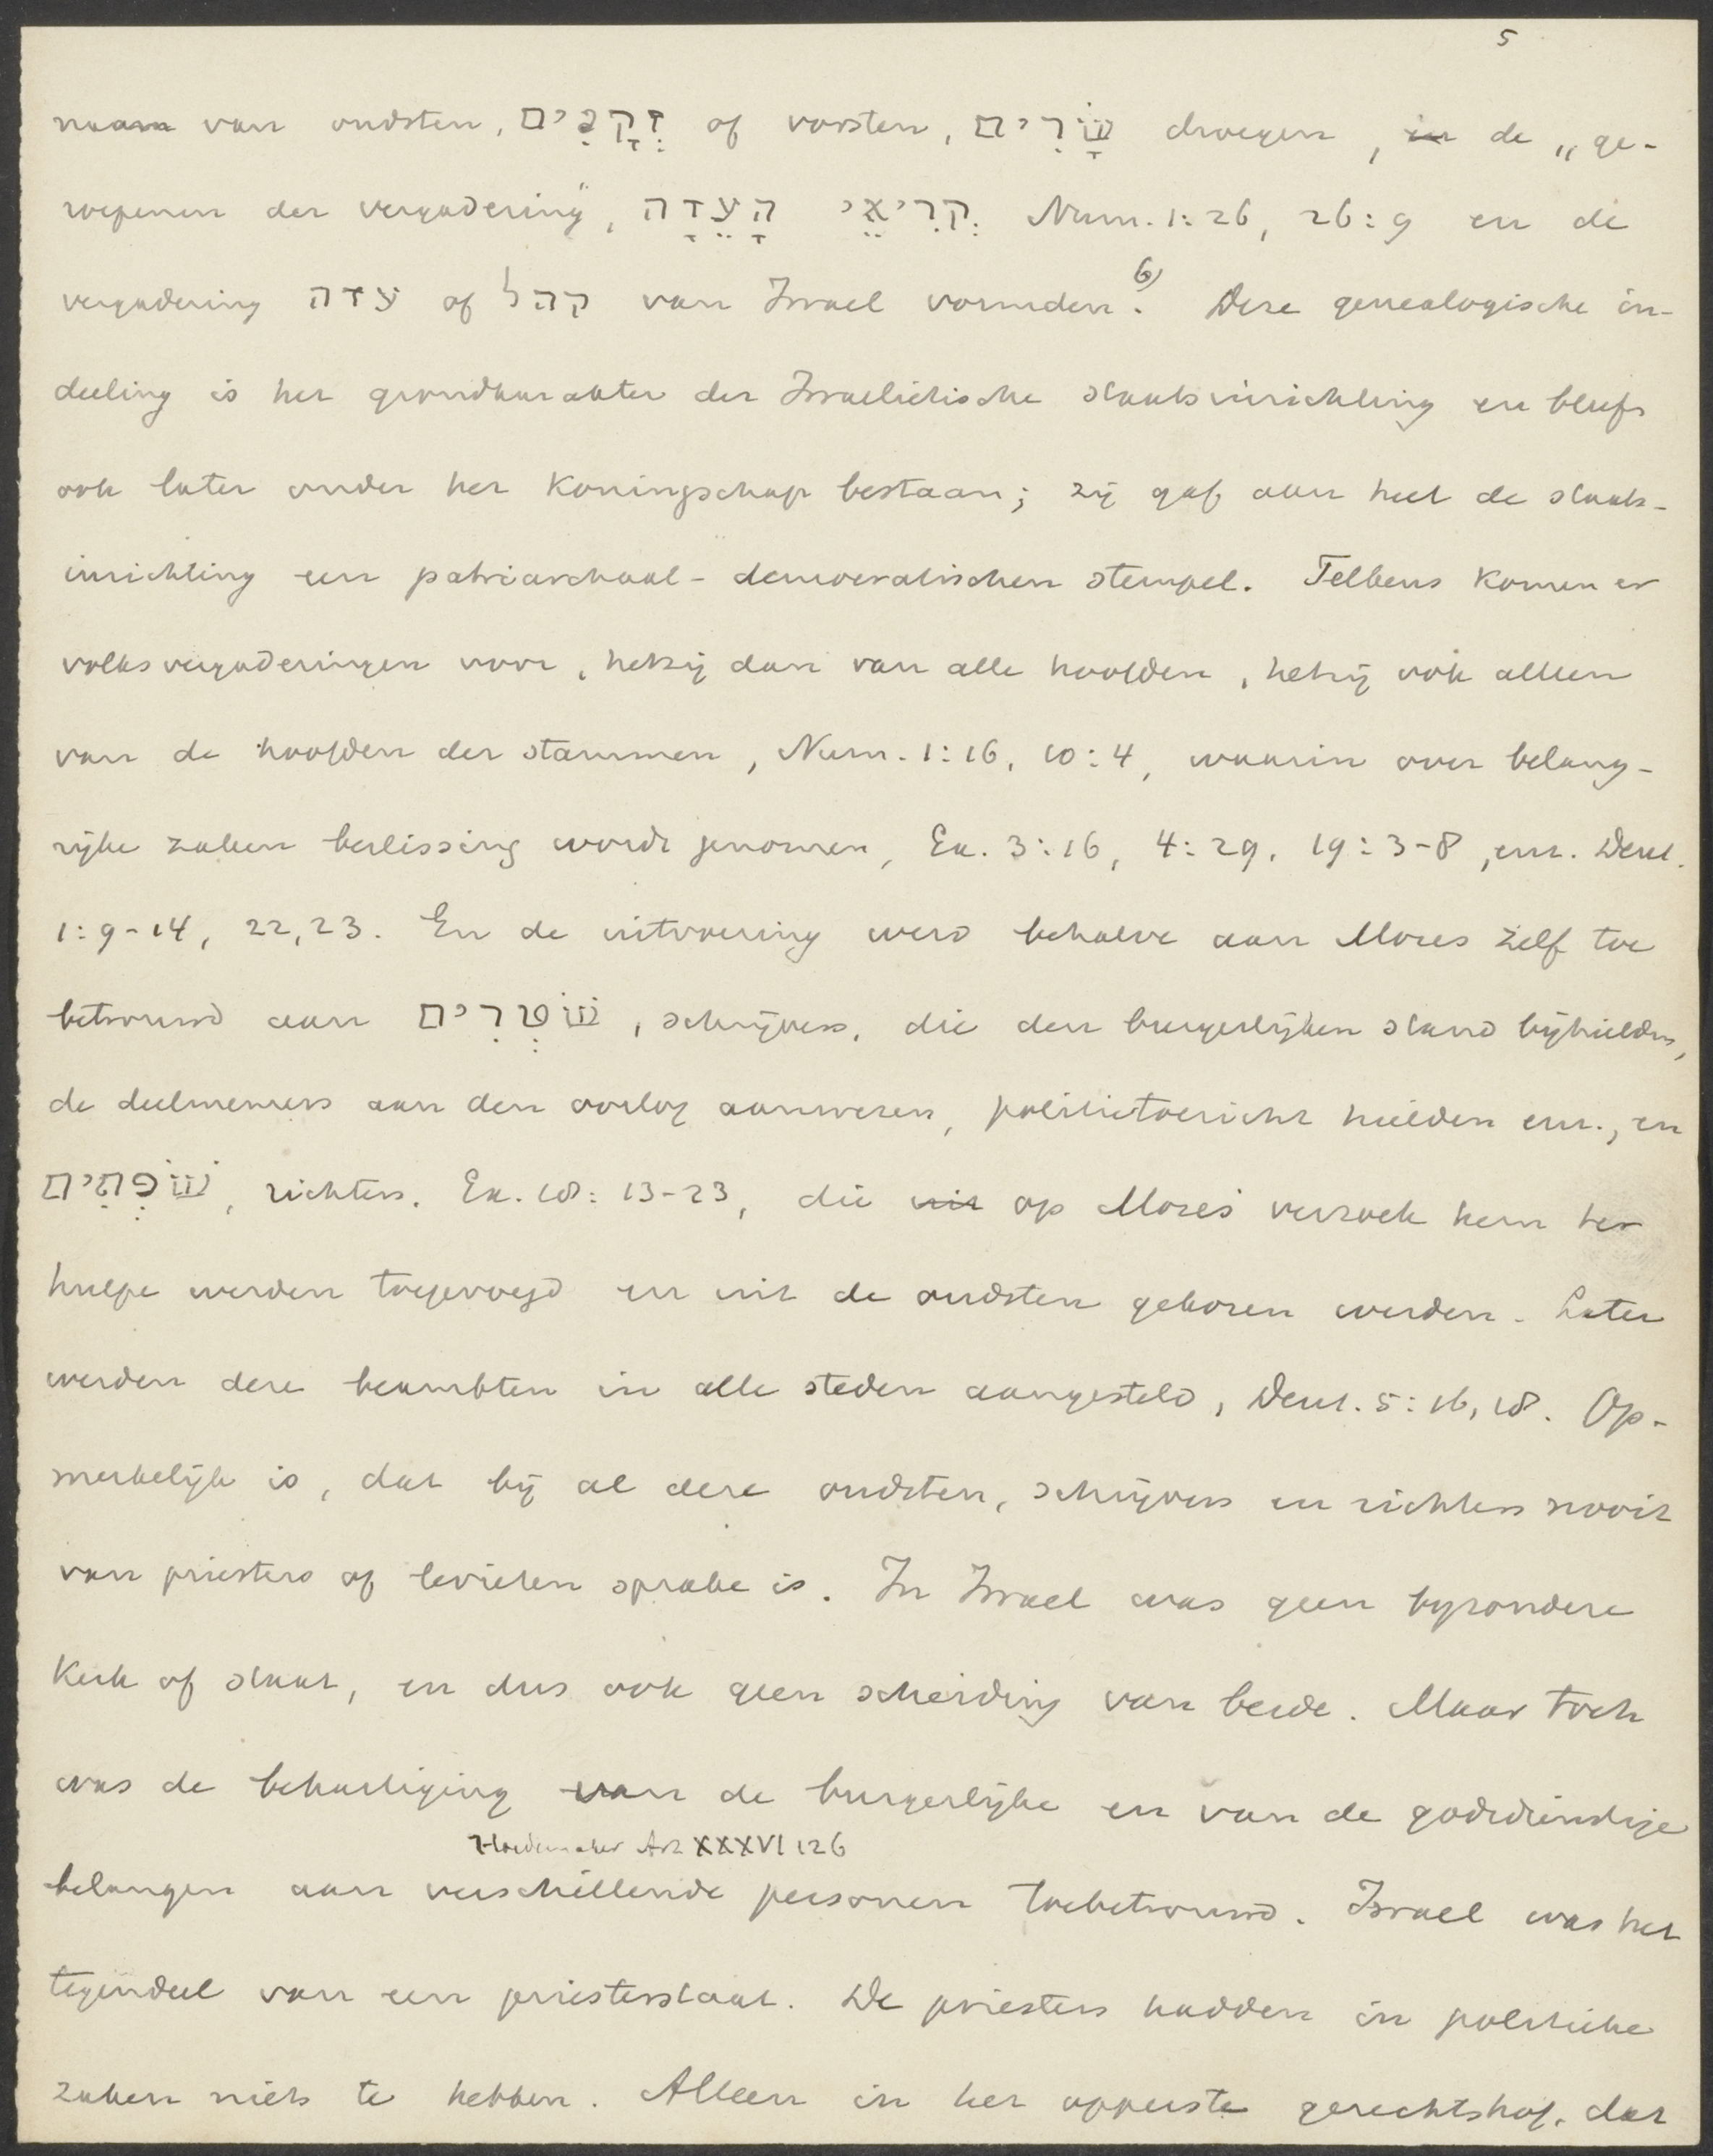 5
naam van oudsten, זְקֵנִים of vorsten, שָׂרִים droegen, in de „ge-
roepenen der vergadering”, קְרִיאֵי הָעֵדָה Num. 1:26, 26:9 en de
vergadering עדה of קהל van Israel vormden. 6) Deze genealogische in-
deeling is het grondkarakter der Israelietische staatsinrichting en bleef
ook later onder het Koningschap bestaan; zij gaf aan heel de staats-
inrichting een patriarchaal-democratischen stempel. Telkens komen er
volksvergaderingen voor, hetzij dan van alle hoofden, hetzij ook alleen
van de hoofden der stammen, Num. 1:16, 10:4, waarin over belang-
rijke zaken beslissing wordt genomen, Ex. 3:16, 4:29, 19:3-8, enz. Deut.
1:9-14, 22,23. En de uitvoering werd behalve aan Mozes zelf toe
betrouwd aan שׁוֹטְרִים, schrijvers, die den burgerlijken stand bijhielden,
de deelnemers aan den oorlog aanwezen, politietoezicht hielden enz., en
שׁוֹפְתִים, richters. Ex. 18:13-23, die uit op Mozes' verzoek hem ter
hulpe werden toegevoegd en uit de oudsten gekozen werden. Later
werden deze beambten in alle steden aangesteld, Deut. 5:16, 18. Op-
merkelijk is, dat bij al deze oudsten, schrijvers en richters nooit
van priesters of levieten sprake is. In Israel was geen byzondere
Kerk of staat, en dus ook geen scheiding van beide. Maar toch
was de behartiging van de burgerlijke en van de godsdienstige
Hoedemaker Art XXXVI 126
belangen aan verschillende personen toebetrouwd. Israel was het
tegendeel van een priesterstaat. De priesters hadden in politieke
zaken niets te hebben. Alleen in het opperste gerechtshof, dat